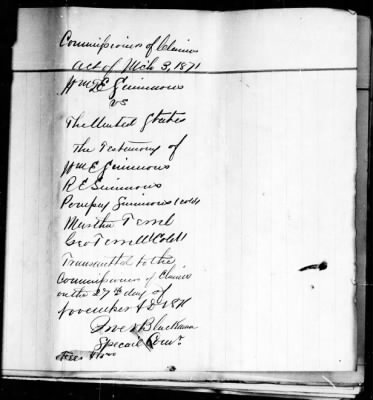 Commissioners of Claims
Act of Mch 3, 1871
Wm E Simmons
vs
The United States
The Testimony of
Wm E Simmons
R E Simmons
Pompey Simmons (cold)
Martha Terrel
Geo Terrell (Cold)
Transmitted to the
Commissioners of Claims
on the 27th day of
November A D
Special Comr